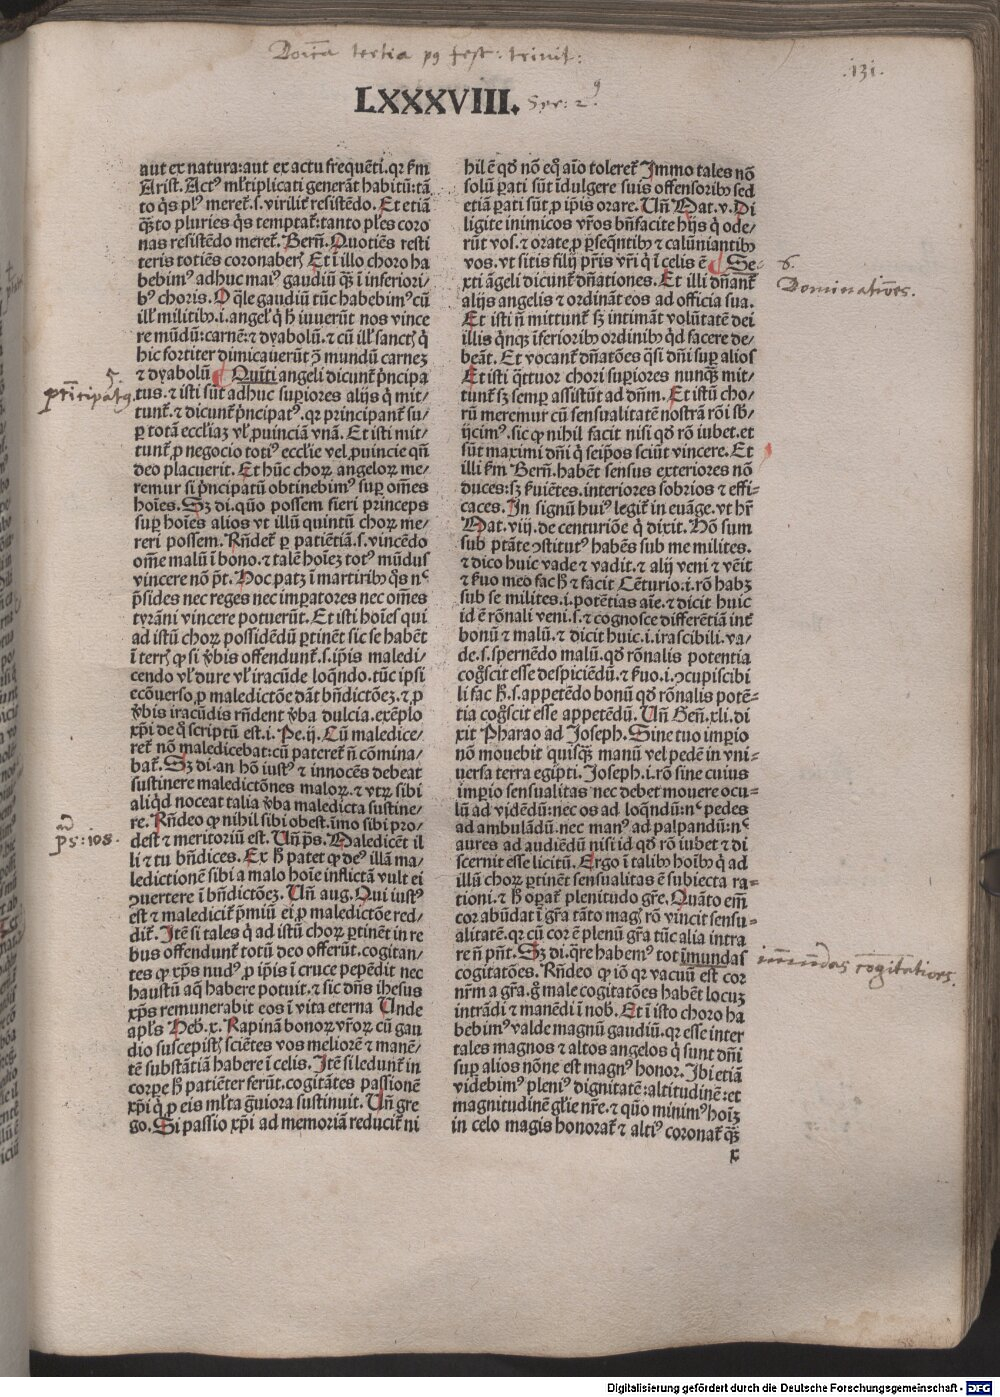 Doica tertia p9 fest: trinit:
.131.
LXXXVIII.
Ser: 2.9
aut ex natura:aut ex actu frequēti.qr ẜm
Arist. Actꝰ mĺtiplicati generāt habitū:tā
to q̄s plꝰ meret̄.s. virilit̄ resistēdo. Et etiā
q̄ȝto pluries q̄s temptat̄:tanto pĺes coro
nas resistēdo meret̄. Berñ. Quotiēs resti
teris totiēs coronaberꝭ Et ī illo choro ha
bebimꝰ adhuc maiꝰ gaudiū q̄ȝ ī inferiori/
bꝰ choris. O q̄le gaudiū tūc habebimꝰ cū
illꝭ militibꝰ.i.angelꝭ q̇ ħ iuuerūt nos vince
re mūdū:carnē:⁊ dyabolū.⁊ cū illꝭ sanctꝭ q̇
hic fortiter dimicauerūt ꝯ mundū carneȝ
⁊ dyabolū ¶ Quīti angeli dicunt̄ ṗncipa
tus.⁊ isti sūt adhuc suꝑiores alijs q̇ mit/
tunt̄.⁊ dicunt̄ ṗncipatꝰ.qr principant̄ su/
ꝑ totā eccĺiaȝ vĺ ꝓuinciā vnā. Et isti mit/
tunt̄ ꝓ negocio totiꝰ eccĺie vel ꝓuincie qñ
deo placuerit. Et hūc choꝝ angeloꝝ me/
remur si ṗncipatū obtinebimꝰ suꝑ om̄es
hoīes. Sȝ di.quo possem fieri princeps
suꝑ hoīes alios vt illū quintū choꝝ me/
reri possem. Rñdet̄ ꝑ patiētiā.s.vincēdo
om̄e malū ī bono.⁊ talē hoīeȝ totꝰ mūdus
vincere nō pt̄. Hoc patȝ ī martiribꝰ q̄s nc̄
p̄sides nec reges nec imꝑatores nec om̄es
tyrāni vincere potuerūt. Et isti hoīes qui
ad istū choꝝ possidēdū ꝑtinēt sic se habēt
ī terrꝭ ꝙ si v̄bis offendunt̄.s.ip̄is maledi/
cendo vĺ dure vĺ iracūde loq̄ndo.tūc ipsi
ecōuerso ꝓ maledictōe dāt bñdictōeȝ.⁊ ꝓ
v̄bis iracūdis rñdent v̄ba dulcia.exēplo
xp̄i de q̇ scriptū est.i. Pe.ij. Cū maledice/
ret̄ nō maledicebat:cū pateret̄ ñ cōmina/
bat̄. Sȝ di.an hō iustꝰ ⁊ innocēs debeat
sustinere maledictōnes maloꝝ.⁊ vtꝝ sibi
aliq̇d noceat talia v̄ba maledicta sustine/
re. Rñdeo ꝙ nihil sibi obest.imo sibi pro/
dest ⁊ meritoriū est. Vñ p̄s. Maledicēt il
li ⁊ tu bñdices. Ex ħ patet ꝙ deꝰ illā ma/
ledictionē sibi a malo hoīe inflictā vult ei
ꝯuertere ī bñdictōeȝ. Vñ aug. Qui iustꝰ
est ⁊ maledicit̄ p̄miū ei ꝓ maledictōe red/
dit̄. Itē si tales q̇ ad istū choꝝ ꝑtinēt in re
bus offendunt̄ totū deo offerūt.cogitan/
tes ꝙ xp̄s nudꝰ ꝓ ip̄is ī cruce pepēdit nec
haustū aq̄ habere potuit.⁊ sic dn̄s ihesus
xp̄s remunerabit eos ī vita eterna Vnde
apĺs Heb.x. Rapinā bonoꝝ vr̄oꝝ cū gau
dio suscepistꝭ sciētes vos meliorē ⁊ manē/
tē substātiā habere ī celis. Itē si ledunt̄ in
corꝑe ħ patiēter ferūt.cogitātes passionē
xp̄i q̇ ꝓ eis mĺta g̃uiora sustinuit. Vñ gre
go. Si passio xp̄i ad memoriā reducit̄ ni
hil ē qd̄ nō eq̇ aīo toleret̄ Immo tales nō
solū ꝑati sūt īdulgere suis offensoribꝰ sed
etiā ꝑati sūt ꝓ ip̄is orare. Vñ Mat.v. Di
ligite inimicos vr̄os bn̄facite hijs q̇ ode/
rūt vos.⁊ orate ꝓ ꝑseq̄ntibꝰ ⁊ calūniantibꝰ
vos.vt sitis filij pr̄is vr̄i q̇ ī celis ē ¶ Se/
xti āgeli dicunt̄ dn̄ationes. Et illi dn̄ant̄
alijs angelis ⁊ ordināt eos ad officia sua.
Et isti ñ mittunt̄ sȝ intimāt volūtatē dei
illis q̇nqȝ īferioribꝰ ordinibꝰ qd̄ facere de/
beāt. Et vocant̄ dn̄atōes q̄si dn̄i suꝑ alios
Et isti q̄ttuor chori suꝑiores nunq̄ȝ mit/
tunt̄ sȝ semꝑ assistūt ad dn̄m. Et istū cho/
rū meremur cū sensualitatē nostrā rōi sb̄/
ijcimꝰ.sic ꝙ nihil facit nisi qd̄ rō iubet.et
sūt maximi dn̄i q̇ seip̄os sciūt vincere. Et
illi ẜm Berñ.habēt sensus exteriores nō
duces:sȝ ẜuiētes.interiores sobrios ⁊ effi/
caces. In signū huiꝰ legit̄ in euāge.vt hr̄
Mat.viij.de centuriōe q̇ dixit. Hō sum
sub ptāte ꝯstitutꝰ habēs sub me milites.
⁊ dico huic vade ⁊ vadit.⁊ alij veni ⁊ vēit
⁊ ẜuo meo fac ħ ⁊ facit Cēturio.i.rō habȝ
sub se milites.i.potētias aīe.⁊ dicit huic
id ē rōnali veni.s.⁊ cognosce differētiā int̄
bonū ⁊ malū.⁊ dicit huic.i.irascibili.va/
de.s.spernēdo malū.qd̄ rōnalis potentia
cog̃scit esse despiciēdū.⁊ ẜuo.i.ꝯcupiscibi
li fac ħ.s.appetēdo bonū qd̄ rōnalis potē/
tia cog̃scit esse appetēdū. Vñ Geñ.xli.di
xit Pharao ad Joseph. Sine tuo imꝑio
nō mouebit quisq̄ȝ manū vel pedē in vni/
uersa terra egipti. Joseph.i.rō sine cuius
imꝑio sensualitas nec debet mouere ocu/
lū ad vidēdū:nec os ad loq̄ndū:nc̄ pedes
ad ambulādū.nec manꝰ ad palpandū:nc̄
aures ad audiēdū nisi id qd̄ rō iubet ⁊ di
scernit esse licitū. Ergo ī talibꝰ hoībꝰ q̇ ad
illū choꝝ ꝑtinēt sensualitas ē subiecta ra/
tioni.⁊ ħ oꝑat̄ plenitudo gr̄e. Quāto em̄
cor abūdat ī gr̄a tāto magꝭ rō vincit sensu/
alitatē.qr cū cor ē plenū gr̄a tūc alia intra
re ñ pñt. Sȝ di.q̄re habemꝰ tot īmundas
cogitatōes. Rñdeo ꝙ iō qr vacuū est cor
nr̄m a gr̄a.g̊ male cogitatōes habēt locuȝ
intrādi ⁊ manēdi ī nob̄. Et ī isto choro ha
bebimꝰ valde magnū gaudiū.qr esse inter
tales magnos ⁊ altos angelos q̇ sunt dn̄i
suꝑ alios nōne est magnꝰ honor. Ibi etiā
videbimꝰ pleniꝰ dignitatē:altitudinē:et
magnitudinē gĺie nr̄e.⁊ quo minimꝰ hoīȝ
in celo magis honorat̄ ⁊ altiꝰ coronat̄ q̄ȝ
x
5.
principatꝰ.
ad
ps: 108.
6.
Dominatiōes.
immūdas cogitatiōes.
Digitalisierung gefördert durch die Deutsche Forschungsgemeinschaft - DFG